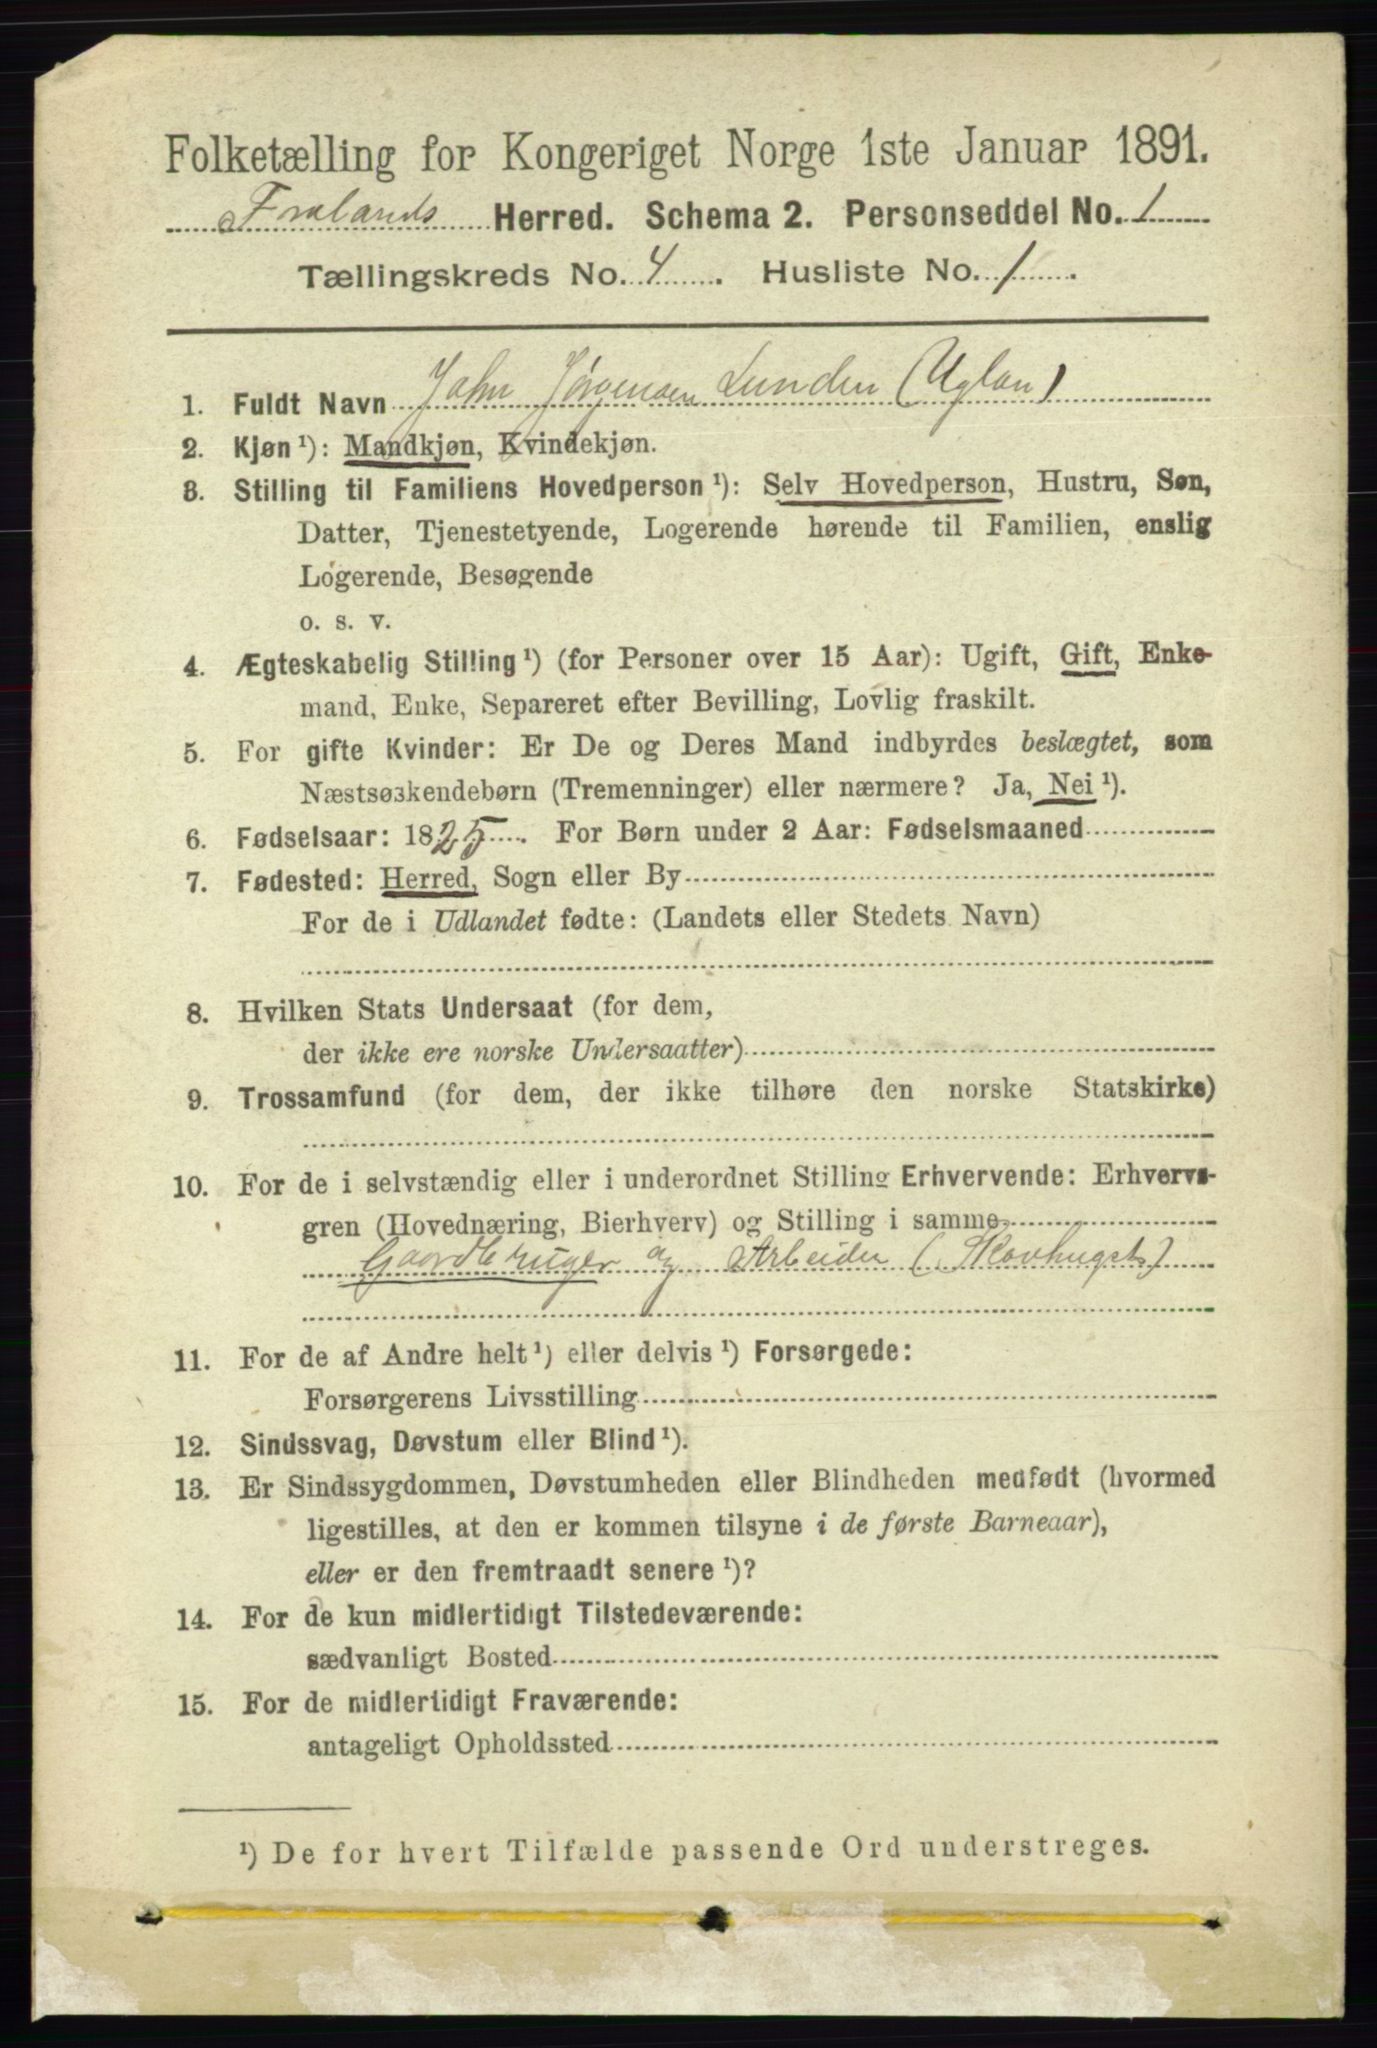 Folketælling for Kongeriget Norge 1ste Januar 1891.
Frolands Herred. Schema 2. Personseddel No. 1
Tællingskreds No. 4. Husliste No. 1.
1. Fuldt Navn John Jørgensen Lunden (Uglan)
2. Kjøn¹): Mandkjøn, Kvindekjøn.
3. Stilling til Familiens Hovedperson¹): Selv Hovedperson, Hustru, Søn,
Datter, Tjenestetyende, Logerende hørende til Familien, enslig
Logerende, Besøgende
o. s. v.
4. Ægteskabelig Stilling¹) (for Personer over 15 Aar): Ugift, Gift, Enke-
mand, Enke, Separeret efter Bevilling, Lovlig fraskilt.
5. For gifte Kvinder: Er De og Deres Mand indbyrdes beslægtet, som
Næstsøskendebørn (Tremenninger) eller nærmere? Ja, Nei¹).
6. Fødselsaar: 1825. For Børn under 2 Aar: Fødselsmaaned
7. Fødested: Herred, Sogn eller By
For de i Udlandet fødte: (Landets eller Stedets Navn)
8. Hvilken Stats Undersaat (for dem,
der ikke ere norske Undersaatter)
9. Trossamfund (for dem, der ikke tilhøre den norske Statskirke)
10. For de i selvstændig eller i underordnet Stilling Erhvervende: Erhvervs-
gren (Hovednæring, Bierhverv) og Stilling i samme
Gaardbruger og Arbeider (Skovhugst)
11. For de af Andre helt¹) eller delvis¹) Forsørgede:
Forsørgerens Livsstilling
12. Sindssvag, Døvstum eller Blind¹).
13. Er Sindssygdommen, Døvstumheden eller Blindheden medfødt (hvormed
ligestilles, at den er kommen tilsyne i de første Barneaar),
eller er den fremtraadt senere¹)?
14. For de kun midlertidigt Tilstedeværende:
sædvanligt Bosted
15. For de midlertidigt Fraværende:
antageligt Opholdssted
¹) De for hvert Tilfælde passende Ord understreges.